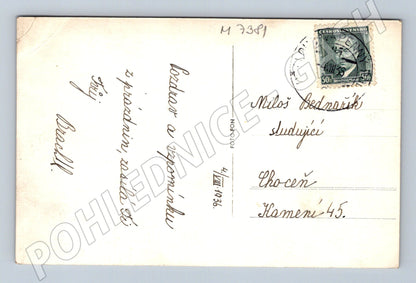 M 7381
Pozdrav a vzpomínku
z prázdnin, zasílá Tě
Tvůj
4/VIII 1936.
FOTOFON
ČESKOSLOVENSKO
50 50
Miloš Bednařík
studující
Choceň
Kamení 45.
POHLEDNICE